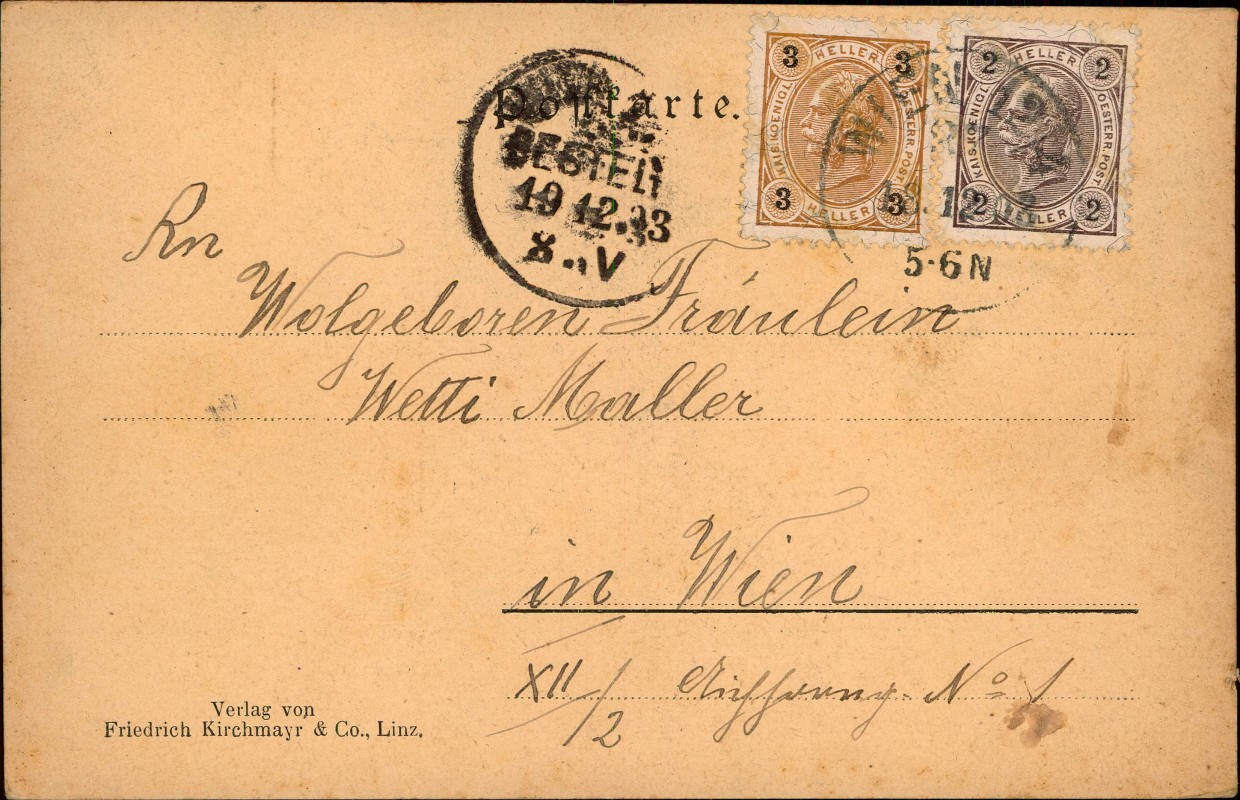 Postkarte.
3 HELLER 3
KAIS. KOENIGL. OESTERR. POST
3 HELLER 3
2 HELLER 2
KAIS. KOENIGL. OESTERR. POST
2 HELLER 2
BESTELLT
19 12.03
8 V
5-6N
An
Wolgeboren Fräulein
Wetti Maller
in Wien
XII/2 No 1
Verlag von
Friedrich Kirchmayr & Co., Linz.